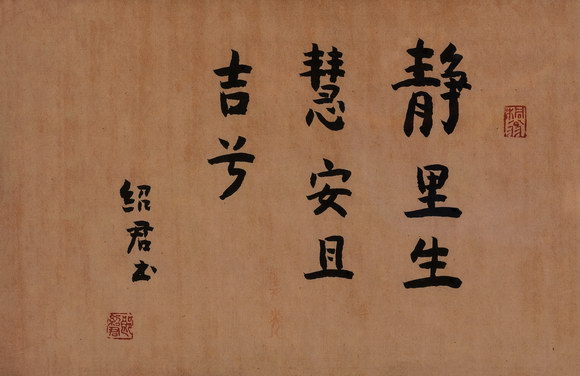 静里生
慧安且
吉兮
绍君书